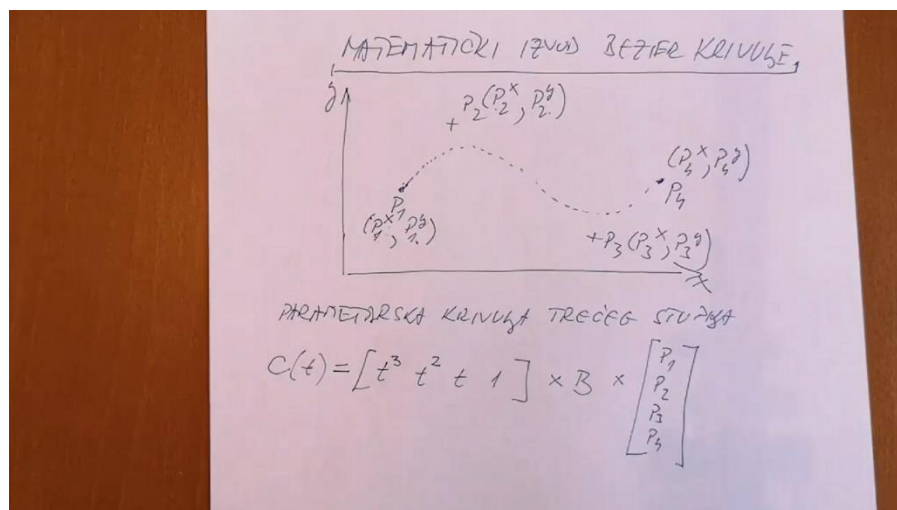 MATEMATIČKI IZVOD BEZIER KRIVULJE
y
P₂(P₂ˣ, P₂ʸ)
(P₄ˣ, P₄ʸ)
P₄
P₁
(P₁ˣ, P₁ʸ)
P₃(P₃ˣ, P₃ʸ)
x
PARAMETARSKA KRIVULJA TREĆEG STUPNJA
C(t) = [t³ t² t 1] × B ×
P₁
P₂
P₃
P₄